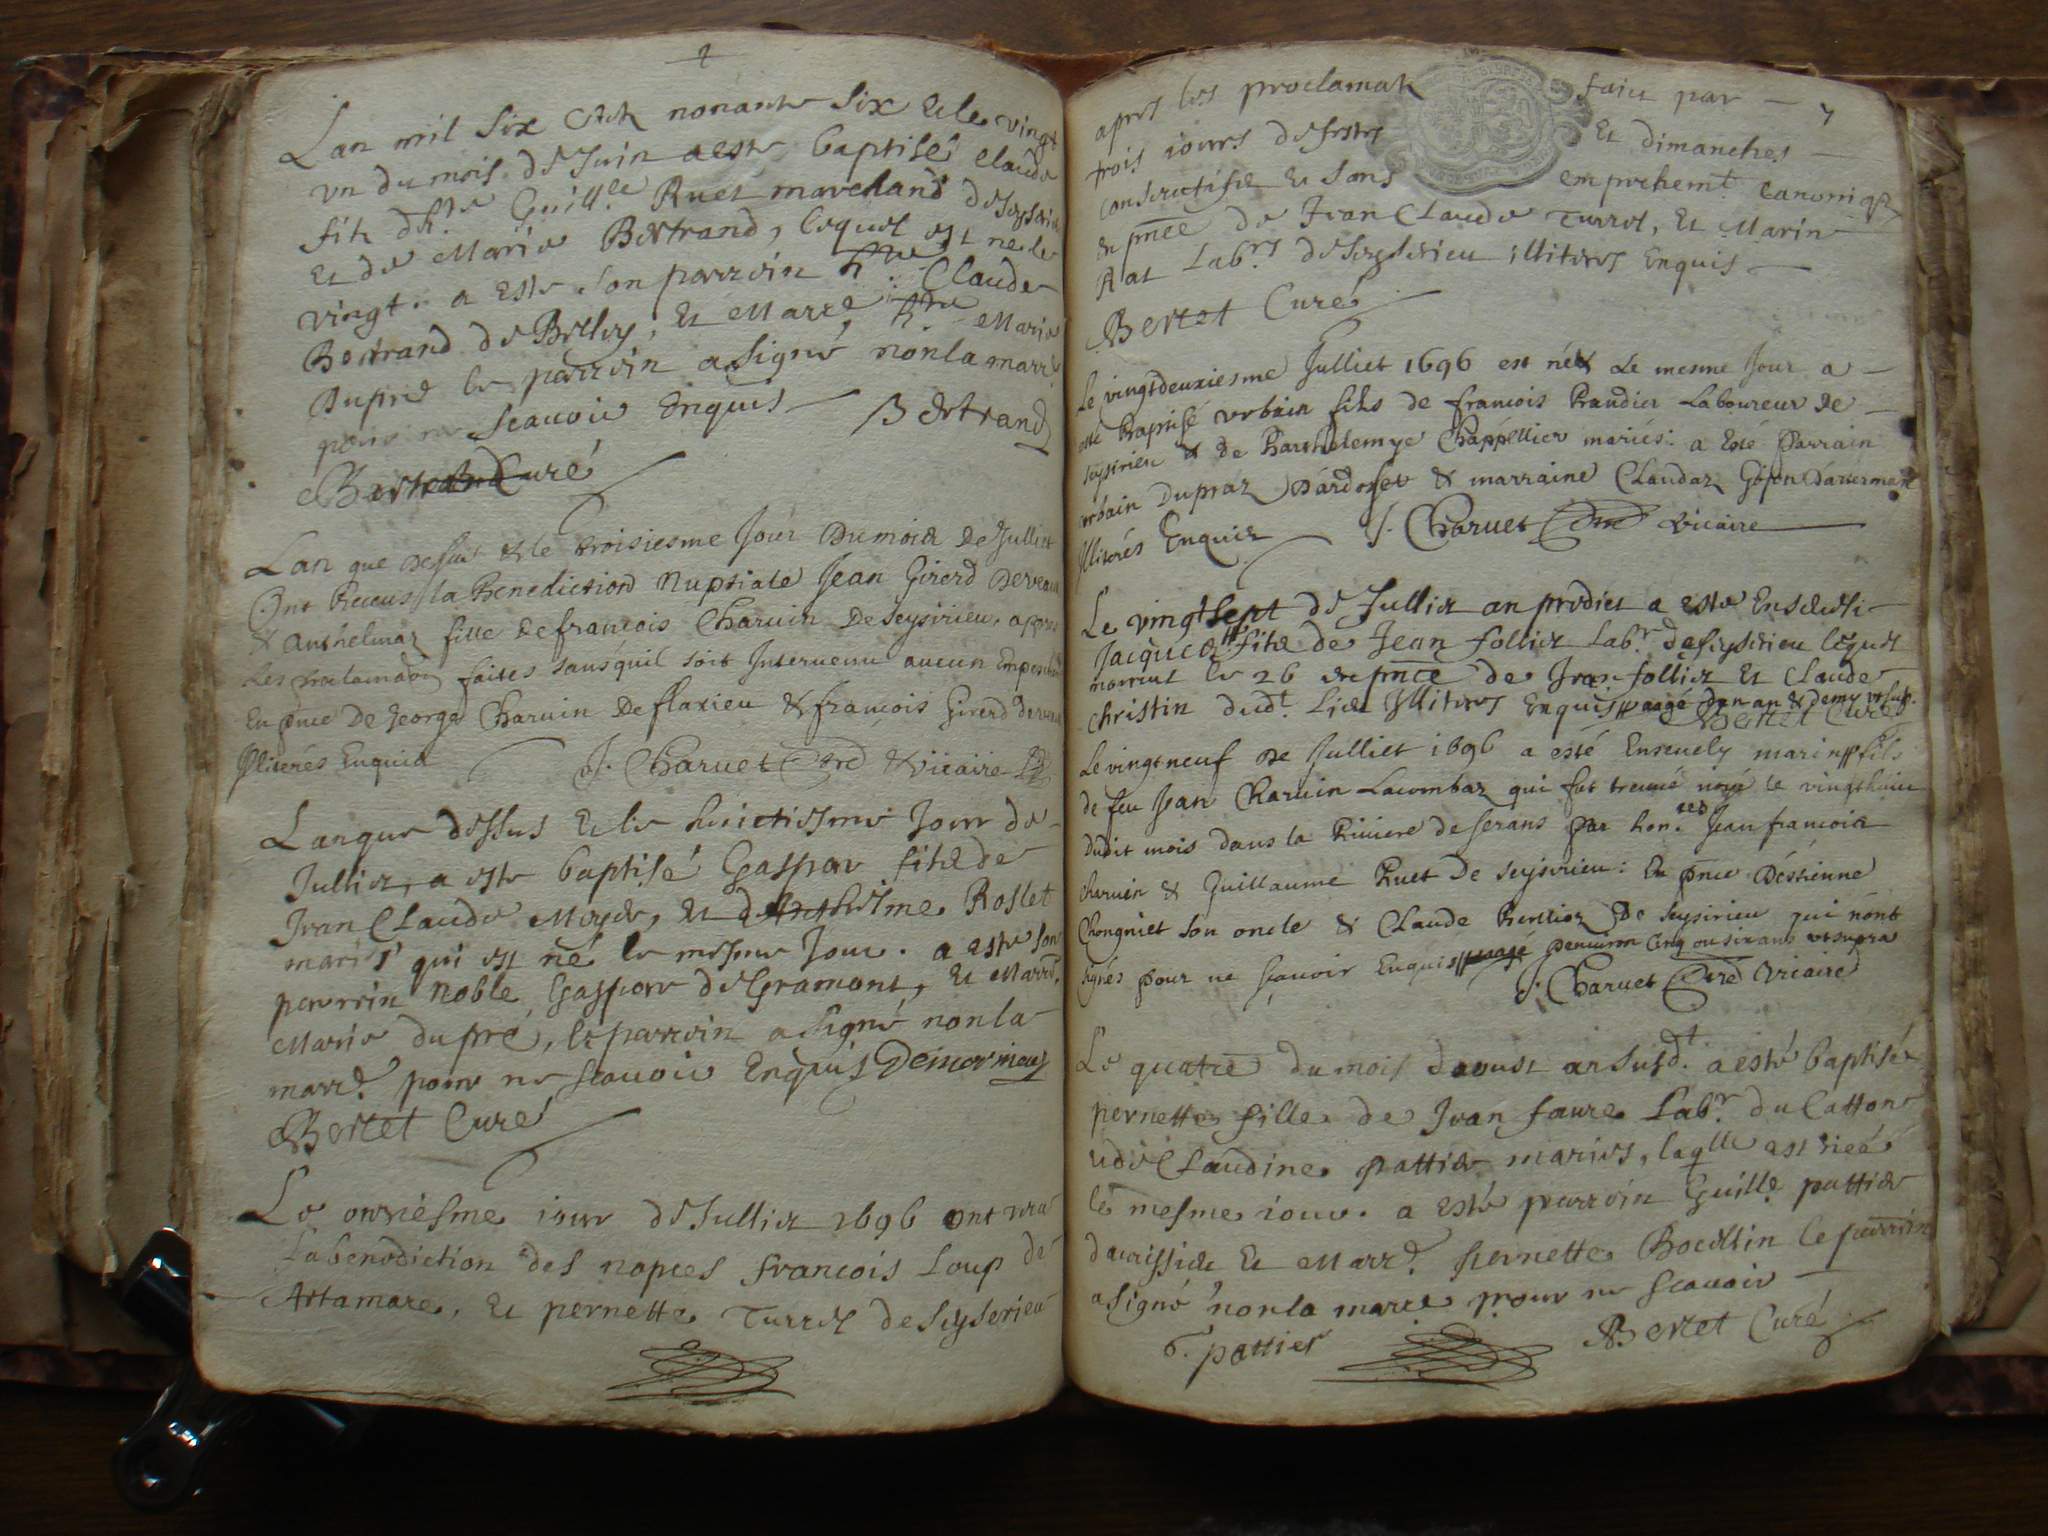 Lan mil six Cent nonante six Et le vingt
vn du mois de Juin a esté baptisé claude
filz d'h.ble Guill.le Ruet marchand de seyserieu
Et de Marie Bertrand, lequel est né le
vingt. a Esté son parrein h.ble Claude
Bertrand de Belley, Et Marr.e h.ble Marie
Dupré le parrein a signé non la marr.e
pour ne scauoir Enquis Bertrand
Bertet Curé
Lan que dessus & le troisiesme Jour Du mois De Julliet
Ont Receus la Benediction Nuptiale Jean Girerd Derveau
& Anthelmaz fille de francois Charuin De Seysirieu, apres
Les proclamaôn faites sans quil soit Interuenu aucun Empeschem
En pnce De george Charuin De flaxieu & francois Girerd
Illiterés Enquis J. Charuet & vicaire
Lan que dessus Et le huictiesme Jour de
Julliet, a esté baptisé Gaspar filz de
Jean Claude Moyde, Et d'Anthelme Roslet
mariés qui est né le mesme Jour. a esté son
parrein Noble Gaspar de Gramont, Et Marr.e
Marie dupré, le parrein a signé non la
marr.e pour ne scauoir Enquis
Bertet Curé
Le onziesme iour de Julliet 1696 ont receu
la benediction des nopces francois Loup de
Artamare, Et pernette Turrel de Seyserieu
7
apres les proclamaôn faict par
trois iours de festes Et dimanches
consecutifz Et sans empechemt canoniqz
en pnce de Jean Claude Turrel, Et Marin
Rat Labrs de Seyserieu illiterés Enquis
Bertet Curé
Le vingtdeuxiesme Julliet 1696 est né & Le mesme Jour a
esté Baptisé vrbain fils de francois Braudier Laboureur de
seysirieu & de Barthelemye Chappellier mariés: a Esté Parrain
vrbain Dupraz Dardosset & marraine Claudaz Gojon Dartemare
Illiterés Enquis J. Charuet vicaire
Le vingt sept de Julliet an prediet a esté Enseueli
Jacques filz de Jean follier Labr de seyserieu lequel
mourut le 26 en pnce de Jean follier Et Claude
christin dud.t Lieu Illiteres Enquis aagé d'un an & demy vt sup.
Bertet Curé
Le vingt neuf de Julliet 1696 a esté Enseuely marin fils
de feu Jean Charuin Lacombaz qui fut treuué noyé le vingthuict
dudit mois dans la Riuiere de serans par hon.res Jean francois
charuin & Guillaume Ruet De Seysirieu: En pnce Destienne
Chongniet son oncle & Claude Berlioz De seysirieu qui n'ont
signés pour ne scauoir Enquis aagé Denuiron Cinq ou six ans vt supra
J. Charuet vicaire
Le quatre du mois daoust an susd.t a esté baptisée
pernette fille de Jean faure Labr du Catton
et de Claudine pattier mariés, laq.lle est neé
le mesme iour. a esté parrein Guille pattier
Et Marr.e pernette Boullin le parrein
a signé non la marre pour ne scauoir
G. pattier Bertet Curé